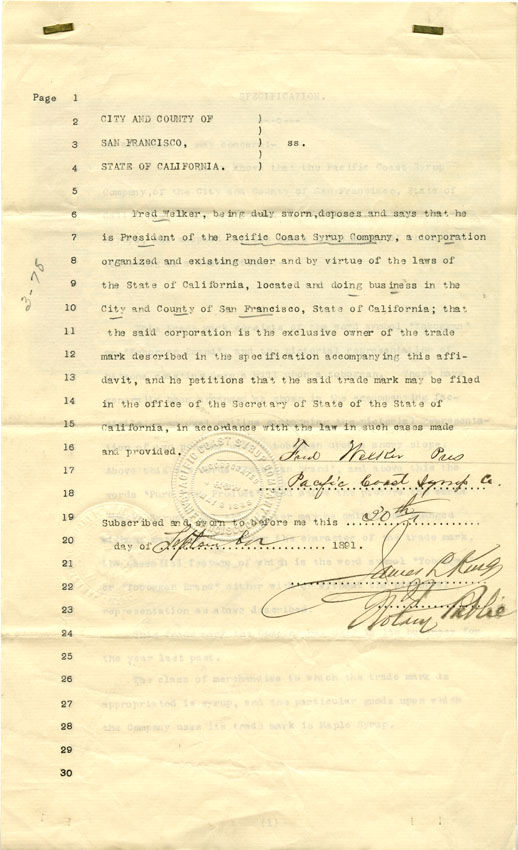 SPECIFICATION.
Page 1
2 CITY AND COUNTY OF )
)
3 SAN FRANCISCO, ) ss.
)
4 STATE OF CALIFORNIA. )
5
6 Fred Welker, being duly sworn,deposes and says that he
7 is President of the Pacific Coast Syrup Company, a corporation
8 organized and existing under and by virtue of the laws of
9 the State of California, located and doing business in the
10 City and County of San Francisco, State of California; that
11 the said corporation is the exclusive owner of the trade
12 mark described in the specification accompanying this affi-
13 davit, and he petitions that the said trade mark may be filed
14 in the office of the Secretary of State of the State of
15 California, in accordance with the law in such cases made
16 and provided. Fred Welker Pres
17 Pacific Coast Syrup Co.
18
19 Subscribed and sworn to before me this 30th
20 day of September 1891.
21 James L. King
22
23 Notary Public
24
25 the year last past.
26 The class of merchandise to which the trade mark is
27 appropriated is syrup, and the particular goods upon which
28 the Company uses its trade mark is Maple Syrup.
29
30
3-75
PACIFIC COAST SYRUP COMPANY
(1)